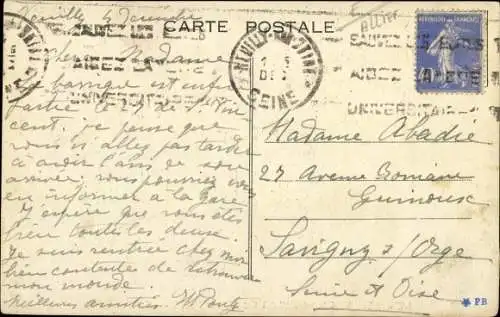 Neuilly 4 Décembre
Chère Madame
La barrique est enfin
partie le 29 de St Vin
cent. je pense que
vous n'allez pas tarder
à avoir l'avis de son
arrivée. vous pourriez vous
en informer à la gare
J'espère que vous êtes
bien toutes les deux.
Je suis rentrée chez moi
bien contente de retrouver
mon monde.
Meilleures amitiés.
CARTE POSTALE
ALLIER
NEUILLY-SUR-SEINE
SEINE
SAUVEZ LES
AIDEZ
UNIVERSITAIRE
Madame Abadie
27 Avenue Romain
Guimoux
Savigny s/ Orge
Seine et Oise
PB